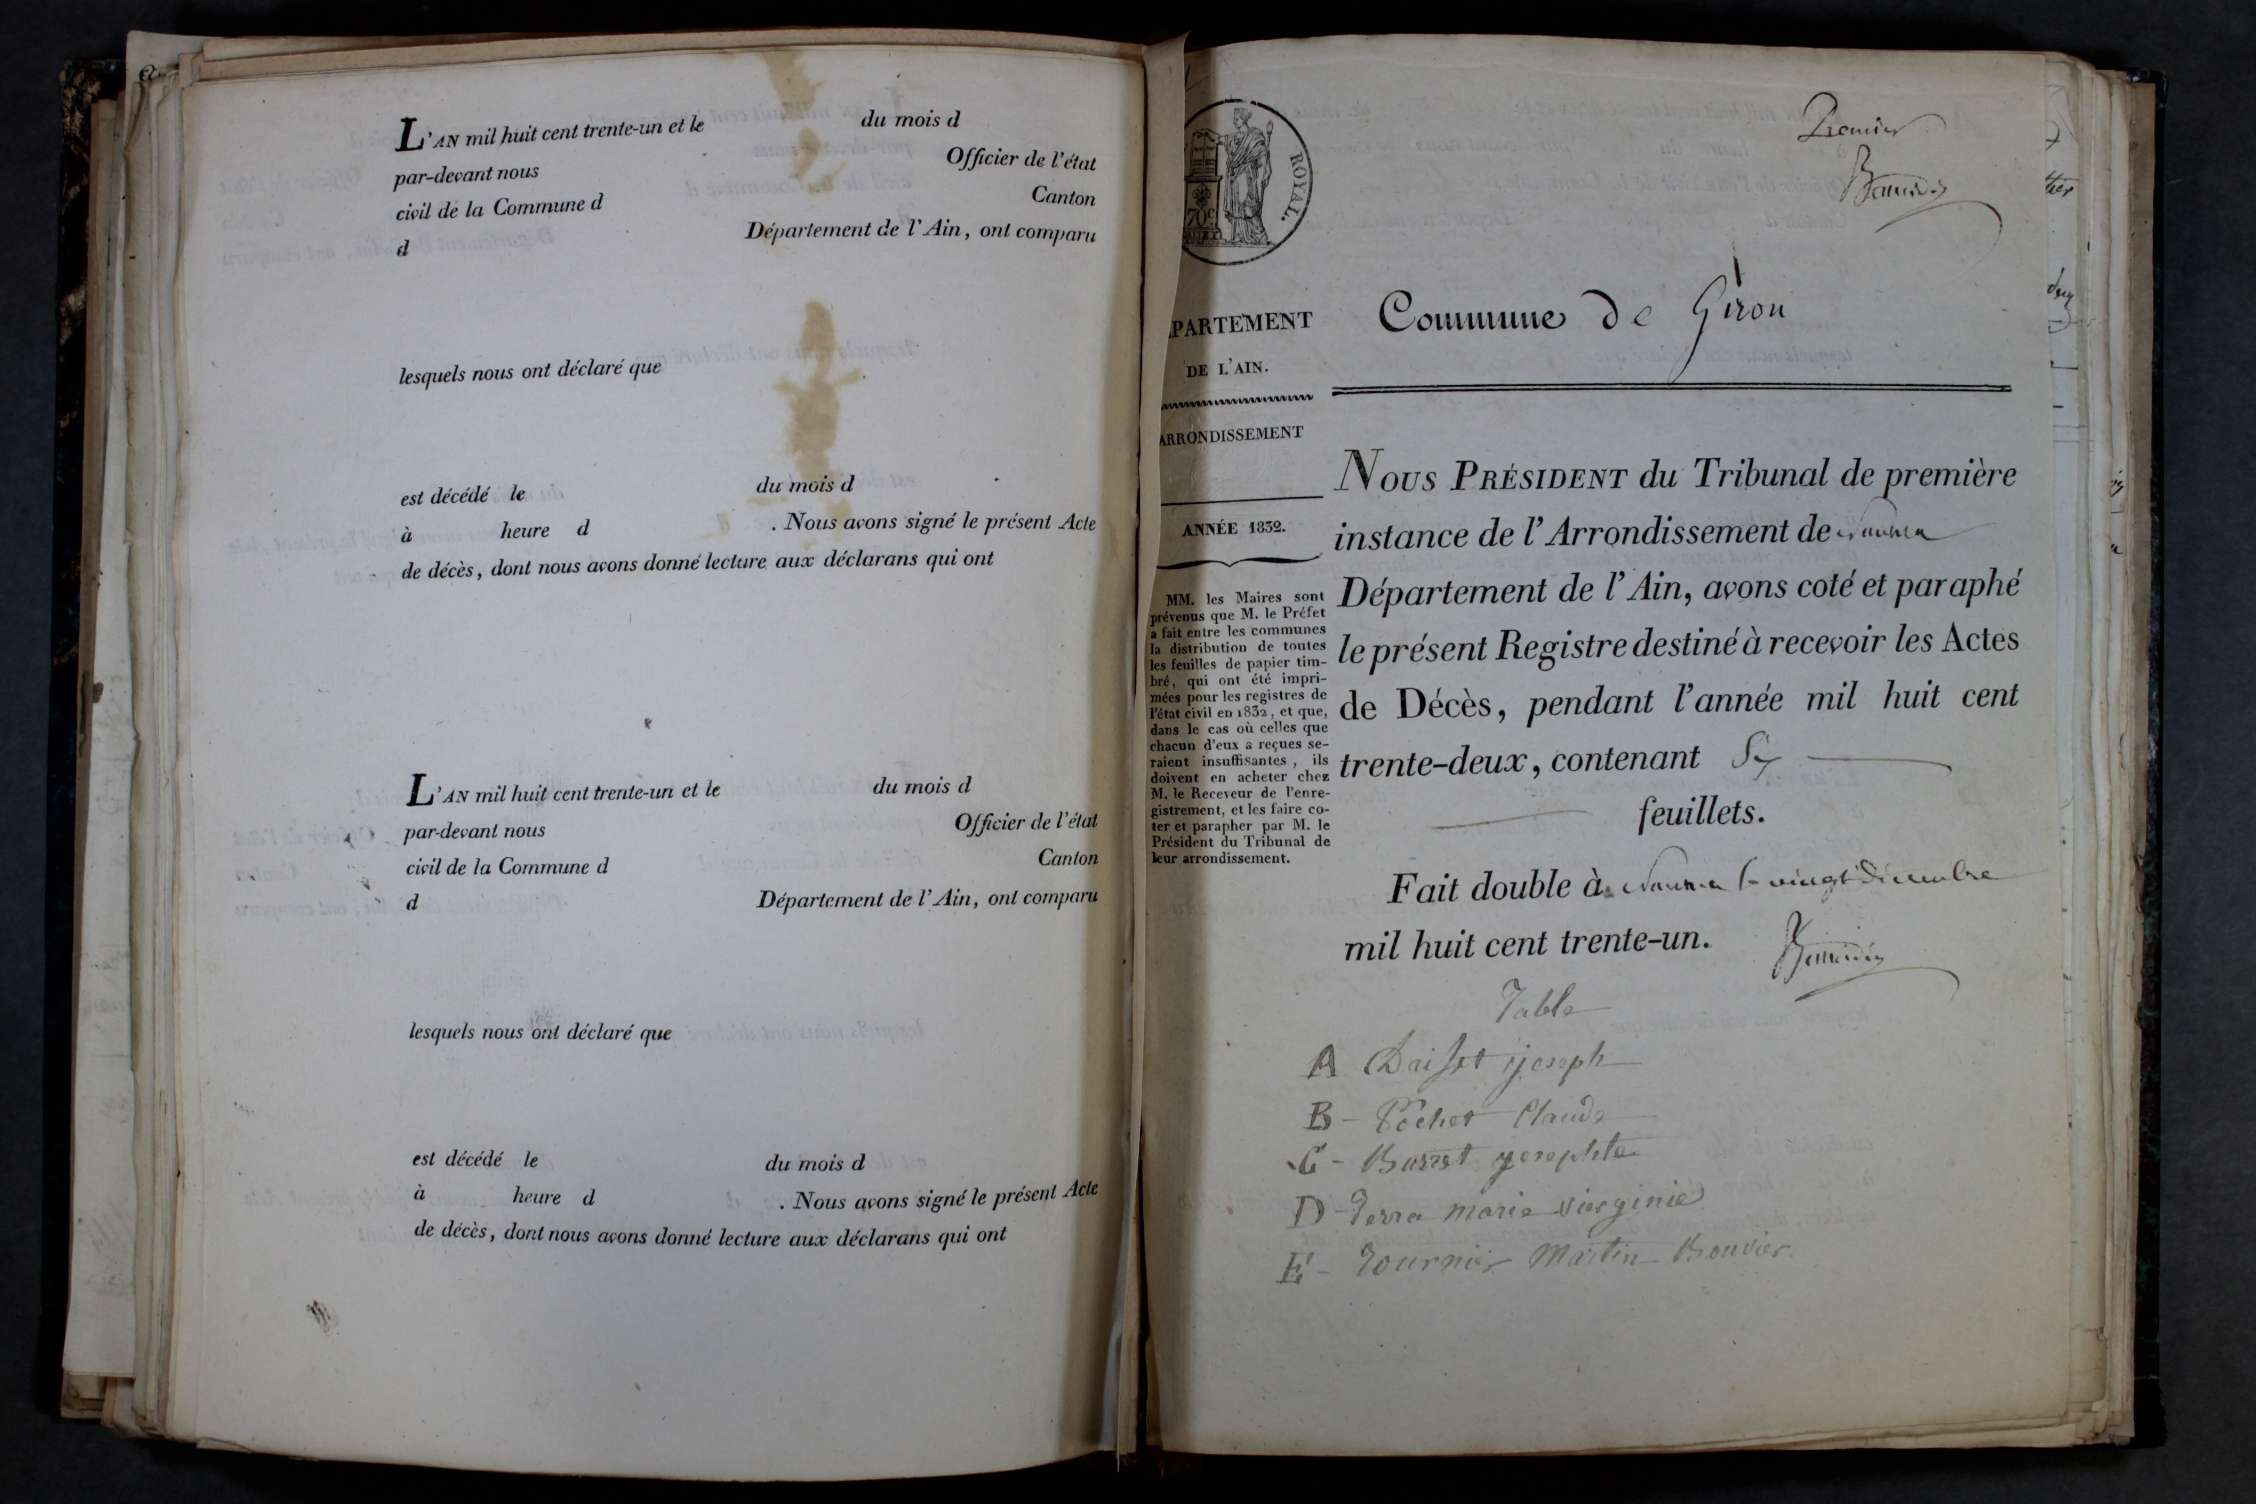 L'AN mil huit cent trente-un et le du mois d
par-devant nous Officier de l'état
civil de la Commune d Canton
d Département de l'Ain, ont comparu
lesquels nous ont déclaré que
est décédé le du mois d
à heure d . Nous avons signé le présent Acte
de décès, dont nous avons donné lecture aux déclarans qui ont
L'AN mil huit cent trente-un et le du mois d
par-devant nous Officier de l'état
civil de la Commune d Canton
d Département de l'Ain, ont comparu
lesquels nous ont déclaré que
est décédé le du mois d
à heure d . Nous avons signé le présent Acte
de décès, dont nous avons donné lecture aux déclarans qui ont
Premier
ROYAL.
70c
PARTEMENT
DE L'AIN.
ARRONDISSEMENT
ANNÉE 1832.
MM. les Maires sont
prévenus que M. le Préfet
a fait entre les communes
la distribution de toutes
les feuilles de papier tim-
bré, qui ont été impri-
mées pour les registres de
l'état civil en 1832, et que,
dans le cas où celles que
chacun d'eux a reçues se-
raient insuffisantes, ils
doivent en acheter chez
M. le Receveur de l'enre-
gistrement, et les faire co-
ter et parapher par M. le
Président du Tribunal de
leur arrondissement.
Commune de Giron
NOUS PRÉSIDENT du Tribunal de première
instance de l'Arrondissement de Nantua
Département de l'Ain, avons coté et paraphé
le présent Registre destiné à recevoir les Actes
de Décès, pendant l'année mil huit cent
trente-deux, contenant Six
feuillets.
Fait double à Nantua le vingt décembre
mil huit cent trente-un.
Table
A joseph
B - Pochet Claude
C - Burret josephte
D - Perra marie virginie
E - Tournier Martin Bouvier